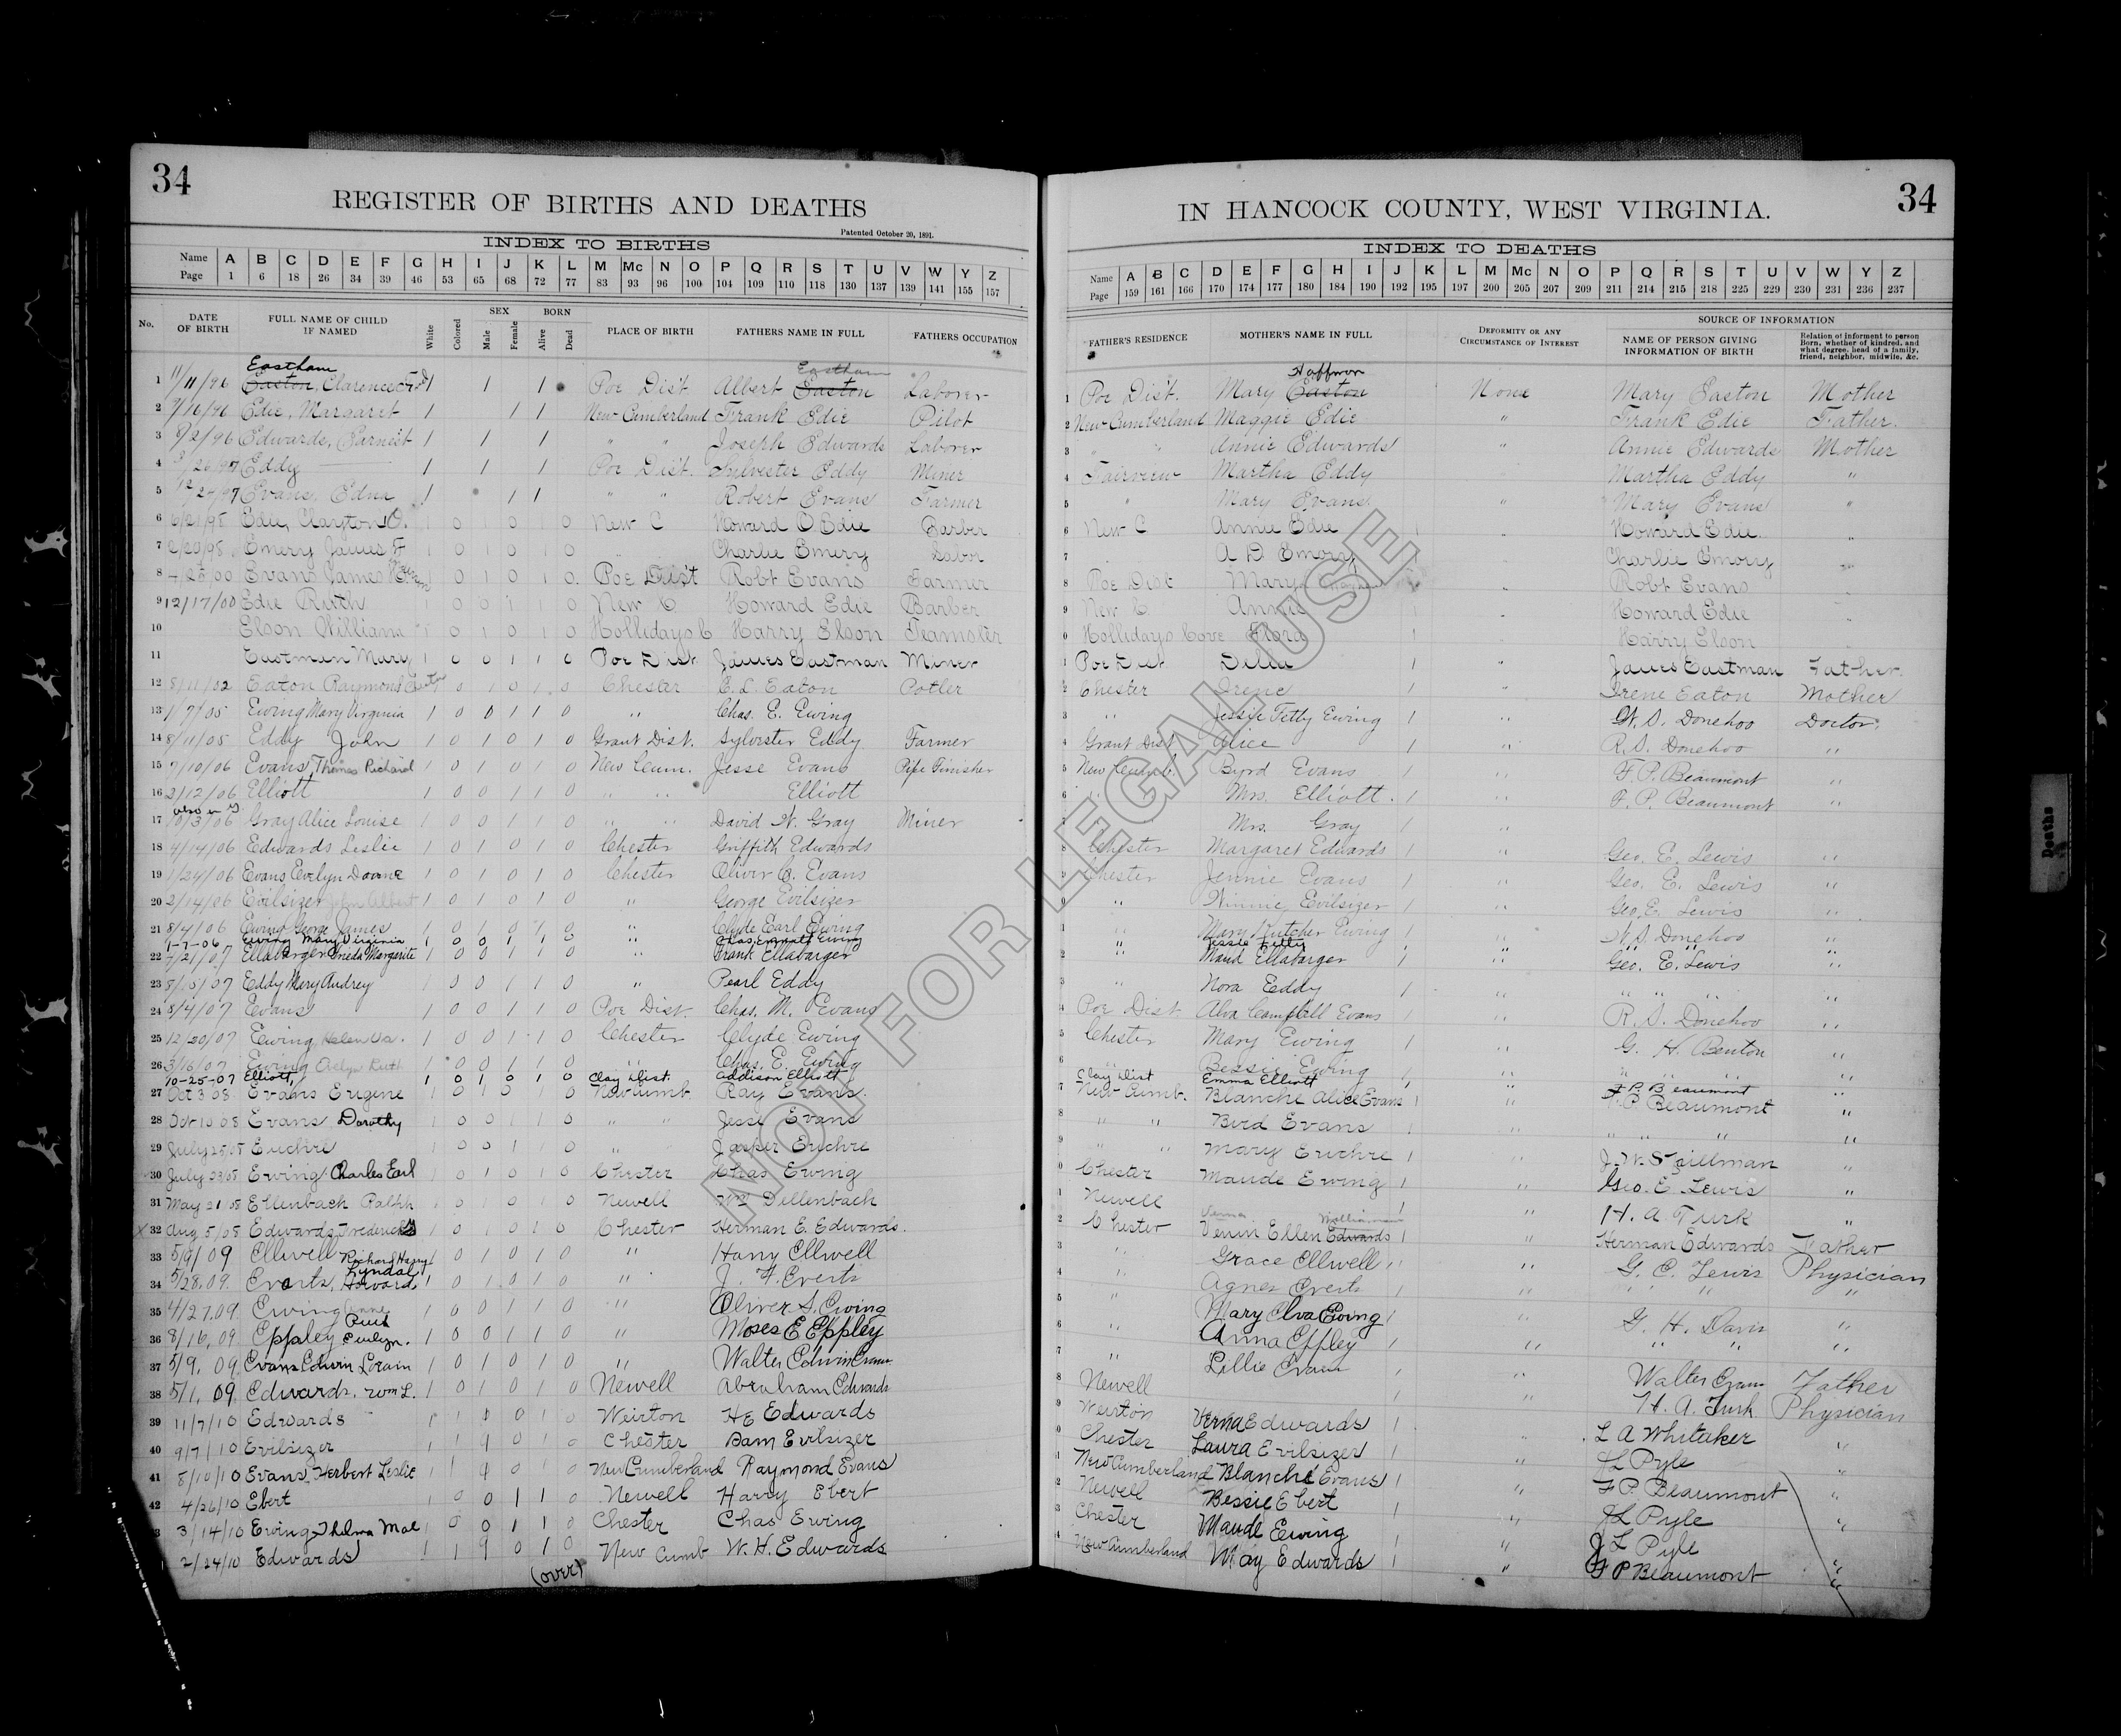 34
REGISTER OF BIRTHS AND DEATHS
Patented October 20, 1891.
INDEX TO BIRTHS
Name A B C D E F G H I J K L M Mc N O P Q R S T U V W Y Z
Page 1 6 18 26 34 39 46 53 65 68 72 77 83 93 96 100 104 109 110 118 130 137 139 141 155 157
No. DATE OF BIRTH FULL NAME OF CHILD IF NAMED White Colored SEX Male Female BORN Alive Dead PLACE OF BIRTH FATHERS NAME IN FULL FATHERS OCCUPATION
Eastham Eastham
1 11/11/96 Easton, Clarence 1 1 1 Poe Dist Albert Easton Laborer
2 7/16/96 Edie, Margaret 1 1 1 New Cumberland Frank Edie Pilot
3 8/2/96 Edwards, Earnest 1 1 1 " " Joseph Edwards Laborer
4 /26/97 Eddy 1 1 1 Poe Dist. Sylvester Eddy Miner
5 Evans, Edna 1 1 1 " " Robert Evans Farmer
6 6/21/98 Edie, Clayton O. 0 0 0 New C Howard O Edie Barber
7 2/20/98 Emery James F 1 0 1 0 1 0 Charlie Emery Labor
8 Evans James 1 0 1 0 1 0 Poe Dist Robt Evans Farmer
9 12/17/00 Edie Ruth 1 0 0 1 1 0 New C Howard Edie Barber
10 Elson William 1 0 1 0 1 0 Hollidays C Harry Elson Teamster
11 Eastman Mary 1 0 0 1 1 0 Poe Dist James Eastman Miner
12 8/11/02 Eaton Raymond 0 1 0 1 0 Chester E. L. Eaton Potler
13 1/7/05 Ewing Mary Virginia 1 0 0 1 1 0 " Chas. E. Ewing
14 8/11/05 Eddy John 1 0 1 0 1 0 Grant Dist. Sylvester Eddy Farmer
15 7/10/06 Evans, Thomas Richard 1 0 1 0 1 0 New Cum. Jesse Evans Pipe Finisher
16 2/12/06 Elliott 1 0 0 1 1 0 " " Elliott
17 10/3/06 Gray Alice Louise 1 0 0 1 1 0 " " David W. Gray Miner
18 4/14/06 Edwards Leslie 1 0 1 0 1 0 Chester Griffith Edwards
19 1/24/06 Evans Evelyn Doane 1 0 1 0 1 0 Chester Oliver C. Evans
20 2/14/06 Evilsizer John Albert 1 0 1 0 1 0 " George Evilsizer
21 8/4/06 Ewing George James 1 0 1 0 1 0 " Clyde Earl Ewing
1-7-06 Ewing Mary Virginia 1 0 0 1 1 0 " Chas. Emmatt Ewing
22 7/21/07 Ellabarger Oneda Margerite 1 0 0 1 1 0 " Frank Ellabarger
23 8/15/07 Eddy Mary Audrey 1 0 0 1 1 0 " Pearl Eddy
24 8/4/07 Evans 1 0 0 1 1 0 Poe Dist. Chas. M. Evans
25 12/20/07 Ewing, Helen Va. 1 0 0 1 1 0 Chester Clyde Ewing
26 3/16/07 Ewing Evelyn Ruth 1 0 0 1 1 0 " Chas. E. Ewing
10-25-07 Elliott, 1 0 1 0 1 0 Clay Dist. Addison Elliott
27 Oct 3 08 Evans Eugene 1 0 1 0 1 0 New Cumb. Ray Evans
28 Oct 10 08 Evans Dorothy 1 0 0 1 1 0 " " Jesse Evans
29 July 25/08 Euchre 1 0 0 1 1 0 " Jasper Euchre
30 July 23/08 Ewing, Charles Earl 1 0 1 0 1 0 Chester Chas Ewing
31 May 21 08 Ellenbach Ralph 1 0 1 0 1 0 Newell Wm Dellenbach
X 32 Aug 5/08 Edwards, Frederick 1 0 1 0 1 0 Chester Herman E. Edwards.
33 5/9/09 Ellwell Richard Harry 1 0 1 0 1 0 " Harry Ellwell
Lyndal
34 5/28.09. Everts, Howard 1 0 1 0 1 0 " J. F. Everts
35 4/27.09 Ewing Anna 1 0 0 1 1 0 " Oliver S. Ewing
Ruth
36 8/16, 09. Eppley Evelyn. 1 0 0 1 1 0 " Moses E Eppley
37 5/9, 09. Evans Edwin Lorain 1 0 1 0 1 0 " Walter Edwin
38 5/1, 09. Edwards, Wm L. 1 0 1 0 1 0 Newell Abraham Edwards
39 11/7/10 Edwards 1 0 1 0 Weirton HE Edwards
40 9/7/10 Evilsizer 1 0 1 0 Chester Sam Evilsizer
41 8/10/10 Evans, Herbert Leslie 1 0 1 0 New Cumberland Raymond Evans
42 4/26/10 Ebert 1 0 0 1 1 0 Newell Harry Ebert
3 3/14/10 Ewing, Thelma Mae 1 0 0 1 1 0 Chester Chas Ewing
2/24/10 Edwards 1 0 1 0 New Cumb W. H. Edwards
(over)
34
IN HANCOCK COUNTY, WEST VIRGINIA.
INDEX TO DEATHS
Name A B C D E F G H I J K L M Mc N O P Q R S T U V W Y Z
Page 159 161 166 170 174 177 180 184 190 192 195 197 200 205 207 209 211 214 215 218 225 229 230 231 236 237
FATHER'S RESIDENCE MOTHER'S NAME IN FULL DEFORMITY OR ANY CIRCUMSTANCE OF INTEREST SOURCE OF INFORMATION NAME OF PERSON GIVING INFORMATION OF BIRTH Relation of informent to person Born, whether of kindred, and what degree, head of a family, friend, neighbor, midwife, &c.
Hoffman
1 Poe Dist. Mary Easton None Mary Easton Mother
2 New Cumberland Maggie Edie " Frank Edie Father.
3 " " Annie Edwards Annie Edwards Mother
4 Fairview Martha Eddy Martha Eddy "
5 " Mary Evans " Mary Evans "
6 New C Annie Edie Howard Edie "
7 A D Emory Charlie Emory
8 Poe Dist Mary Robt Evans
9 New C Annie Howard Edie
0 Hollidays Cove Flora Harry Elson
1 Poe Dist Della 1 " James Eastman Father.
2 Chester Irene 1 Irene Eaton Mother
3 " Jessie Fetty Ewing 1 " W. S. Donehoo Doctor.
4 Grant Dist. Alice 1 " R. S. Donehoo "
5 New Cumb. Byrd Evans 1 " F. P. Beaumont "
6 " Mrs. Elliott. 1 " F. P. Beaumont "
Mrs. Gray 1 "
8 Chester Margaret Edwards 1 " Geo. E. Lewis "
Chester Jennie Evans 1 " Geo. E. Lewis "
0 " Winnie Evilsizer 1 " Geo. E. Lewis "
1 " Mary Kutcher Ewing 1 " W. S. Donehoo "
" Jessie Fetty " " "
2 " Maud Ellabarger 1 " Geo. E. Lewis "
3 " Nora Eddy 1 " " " " "
4 Poe Dist Alva Campbell Evans " R. S. Donehoo "
5 Chester Mary Ewing 1 " G. H. Benton "
6 " Bessie Ewing 1 " " " "
Clay Dist Emma Elliott " F. P. Beaumont "
7 New Cumb. Blanche Alice Evans 1 " F. P. Beaumont "
8 " " Bird Evans 1 " " " " "
9 " " Mary Euchre 1 " J. W. Stillman "
0 Chester Maude Ewing 1 " Geo. E. Lewis "
1 Newell 1 " H. A. Turk "
Verna
2 Chester Ellen Edwards 1 " Herman Edwards Father
3 " Grace Ellwell " " G. E. Lewis Physician
4 " Agnes Everts " " " "
5 " Mary Elva Ewing 1 " G. H. Davis "
6 " Anna Eppley 1 " " " "
7 " Lillie 1 " Walter Father
8 Newell 1 " H. A. Turk Physician
9 Weirton Verna Edwards 1 " L A Whitaker "
0 Chester Laura Evilsizer 1 " JL Pyle "
1 New Cumberland Blanche Evans 1 " F P. Beaumont "
2 Newell Bessie Ebert 1 " JL Pyle "
3 Chester Maude Ewing " J L Pyle "
4 New Cumberland May Edwards 1 " F P Beaumont "
NOT FOR LEGAL USE
Deaths